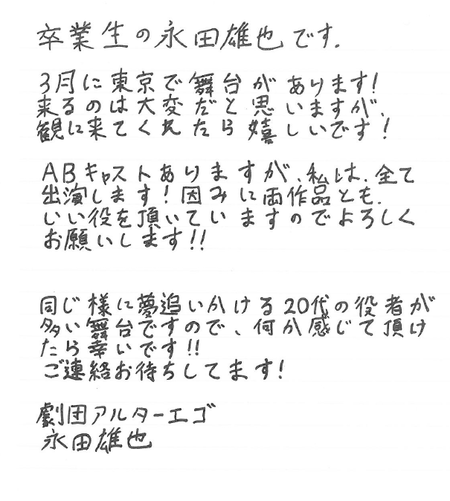 卒業生の永田雄也です.
3月に東京で舞台があります!
来るのは大変だと思いますが、
観に来てくれたら嬉しいです!
ABキャストありますが、私は、全て
出演します!因みに両作品とも、
いい役を頂いていますのでよろしく
お願いします!!
同じ様に夢追いかける20代の役者が
多い舞台ですので、何か感じて頂け
たら幸いです!!
ご連絡お待ちしてます!
劇団アルターエゴ
永田雄也